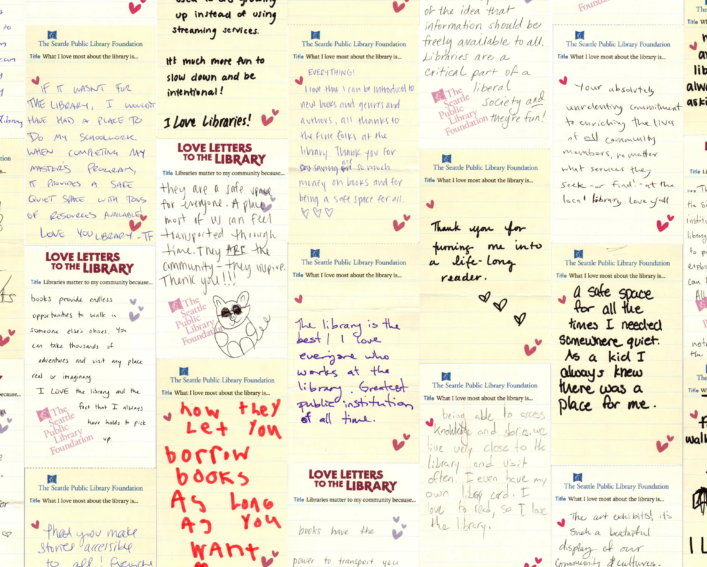 The Seattle Public Library Foundation
Title What I love most about the library is...
IF IT WASN'T FOR
THE LIBRARY, I WOULDN'T
HAVE HAD A PLACE TO
DO MY SCHOOLWORK
WHEN COMPLETING MY
MASTERS PROGRAM,
IT PROVIDES A SAFE
QUIET SPACE WITH TONS
OF RESOURCES AVAILABLE
LOVE YOU LIBRARY - TF
LOVE LETTERS
TO THE LIBRARY
Title Libraries matter to my community because...
books provide endless
opportunities to walk in
someone else's shoes. You
can take thousands of
adventures and visit any place
real or imaginary.
I LOVE the library and the
fact that I always
have holds to pick
up.
The
Seattle
Public
Library
Foundation
The Seattle Public Library Foundation
Title What I love most about the library is...
that you make
stories accessible
to all!
up instead of using
streaming services.
It's much more fun to
slow down and be
intentional!
I Love Libraries!
LOVE LETTERS
TO THE LIBRARY
Title Libraries matter to my community because...
they are a safe space
for everyone. A place
most of us can feel
transported through
time. They ARE the
community - they inspire.
Thank you!!!
The
Seattle
Public
Library
Foundation
The Seattle Public Library Foundation
Title What I love most about the library is...
how they
Let You
borrow
books
As Long
As You
want
The Seattle Public Library Foundation
Title What I love most about the library is...
EVERYTHING!
I love that I can be introduced to
new books and genres and
authors, all thanks to
the fine folks at the
library. Thank you for
so much
money on books and for
being a safe space for all.
The Seattle Public Library Foundation
Title What I love most about the library is...
The library is the
best! I love
everyone who
works at the
library. Greatest
public institution
of all time.
LOVE LETTERS
TO THE LIBRARY
Title Libraries matter to my community because...
books have the
power to transport you
of the idea that
information should be
freely available to all.
Libraries are a
critical part of a
liberal
society and
they're fun!
The
Seattle
Public
Library
Foundation
The Seattle Public Library Foundation
Title What I love most about the library is...
Thank you for
turning me into
a life-long
reader.
The Seattle Public Library Foundation
Title What I love most about the library is...
being able to access
knowledge and
live very close to the
library and visit
often. I even have my
own library card. I
love to read, so I love
the library.
Foundation
The Seattle Public Library Foundation
Title What I love most about the library is...
Your absolutely
unrelenting commitment
to enriching the lives
of all community
members, no matter
what services they
seek - or find - at the
local library. Love y'all
The Seattle Public Library Foundation
Title What I love most about the library is...
A safe space
for all the
times I needed
somewhere quiet.
As a kid I
always knew
there was a
place for me.
The Seattle Public Library Foundation
Title What I love most about the library is...
The art exhibits, it's
such a beautiful
display of our
community & cultures.